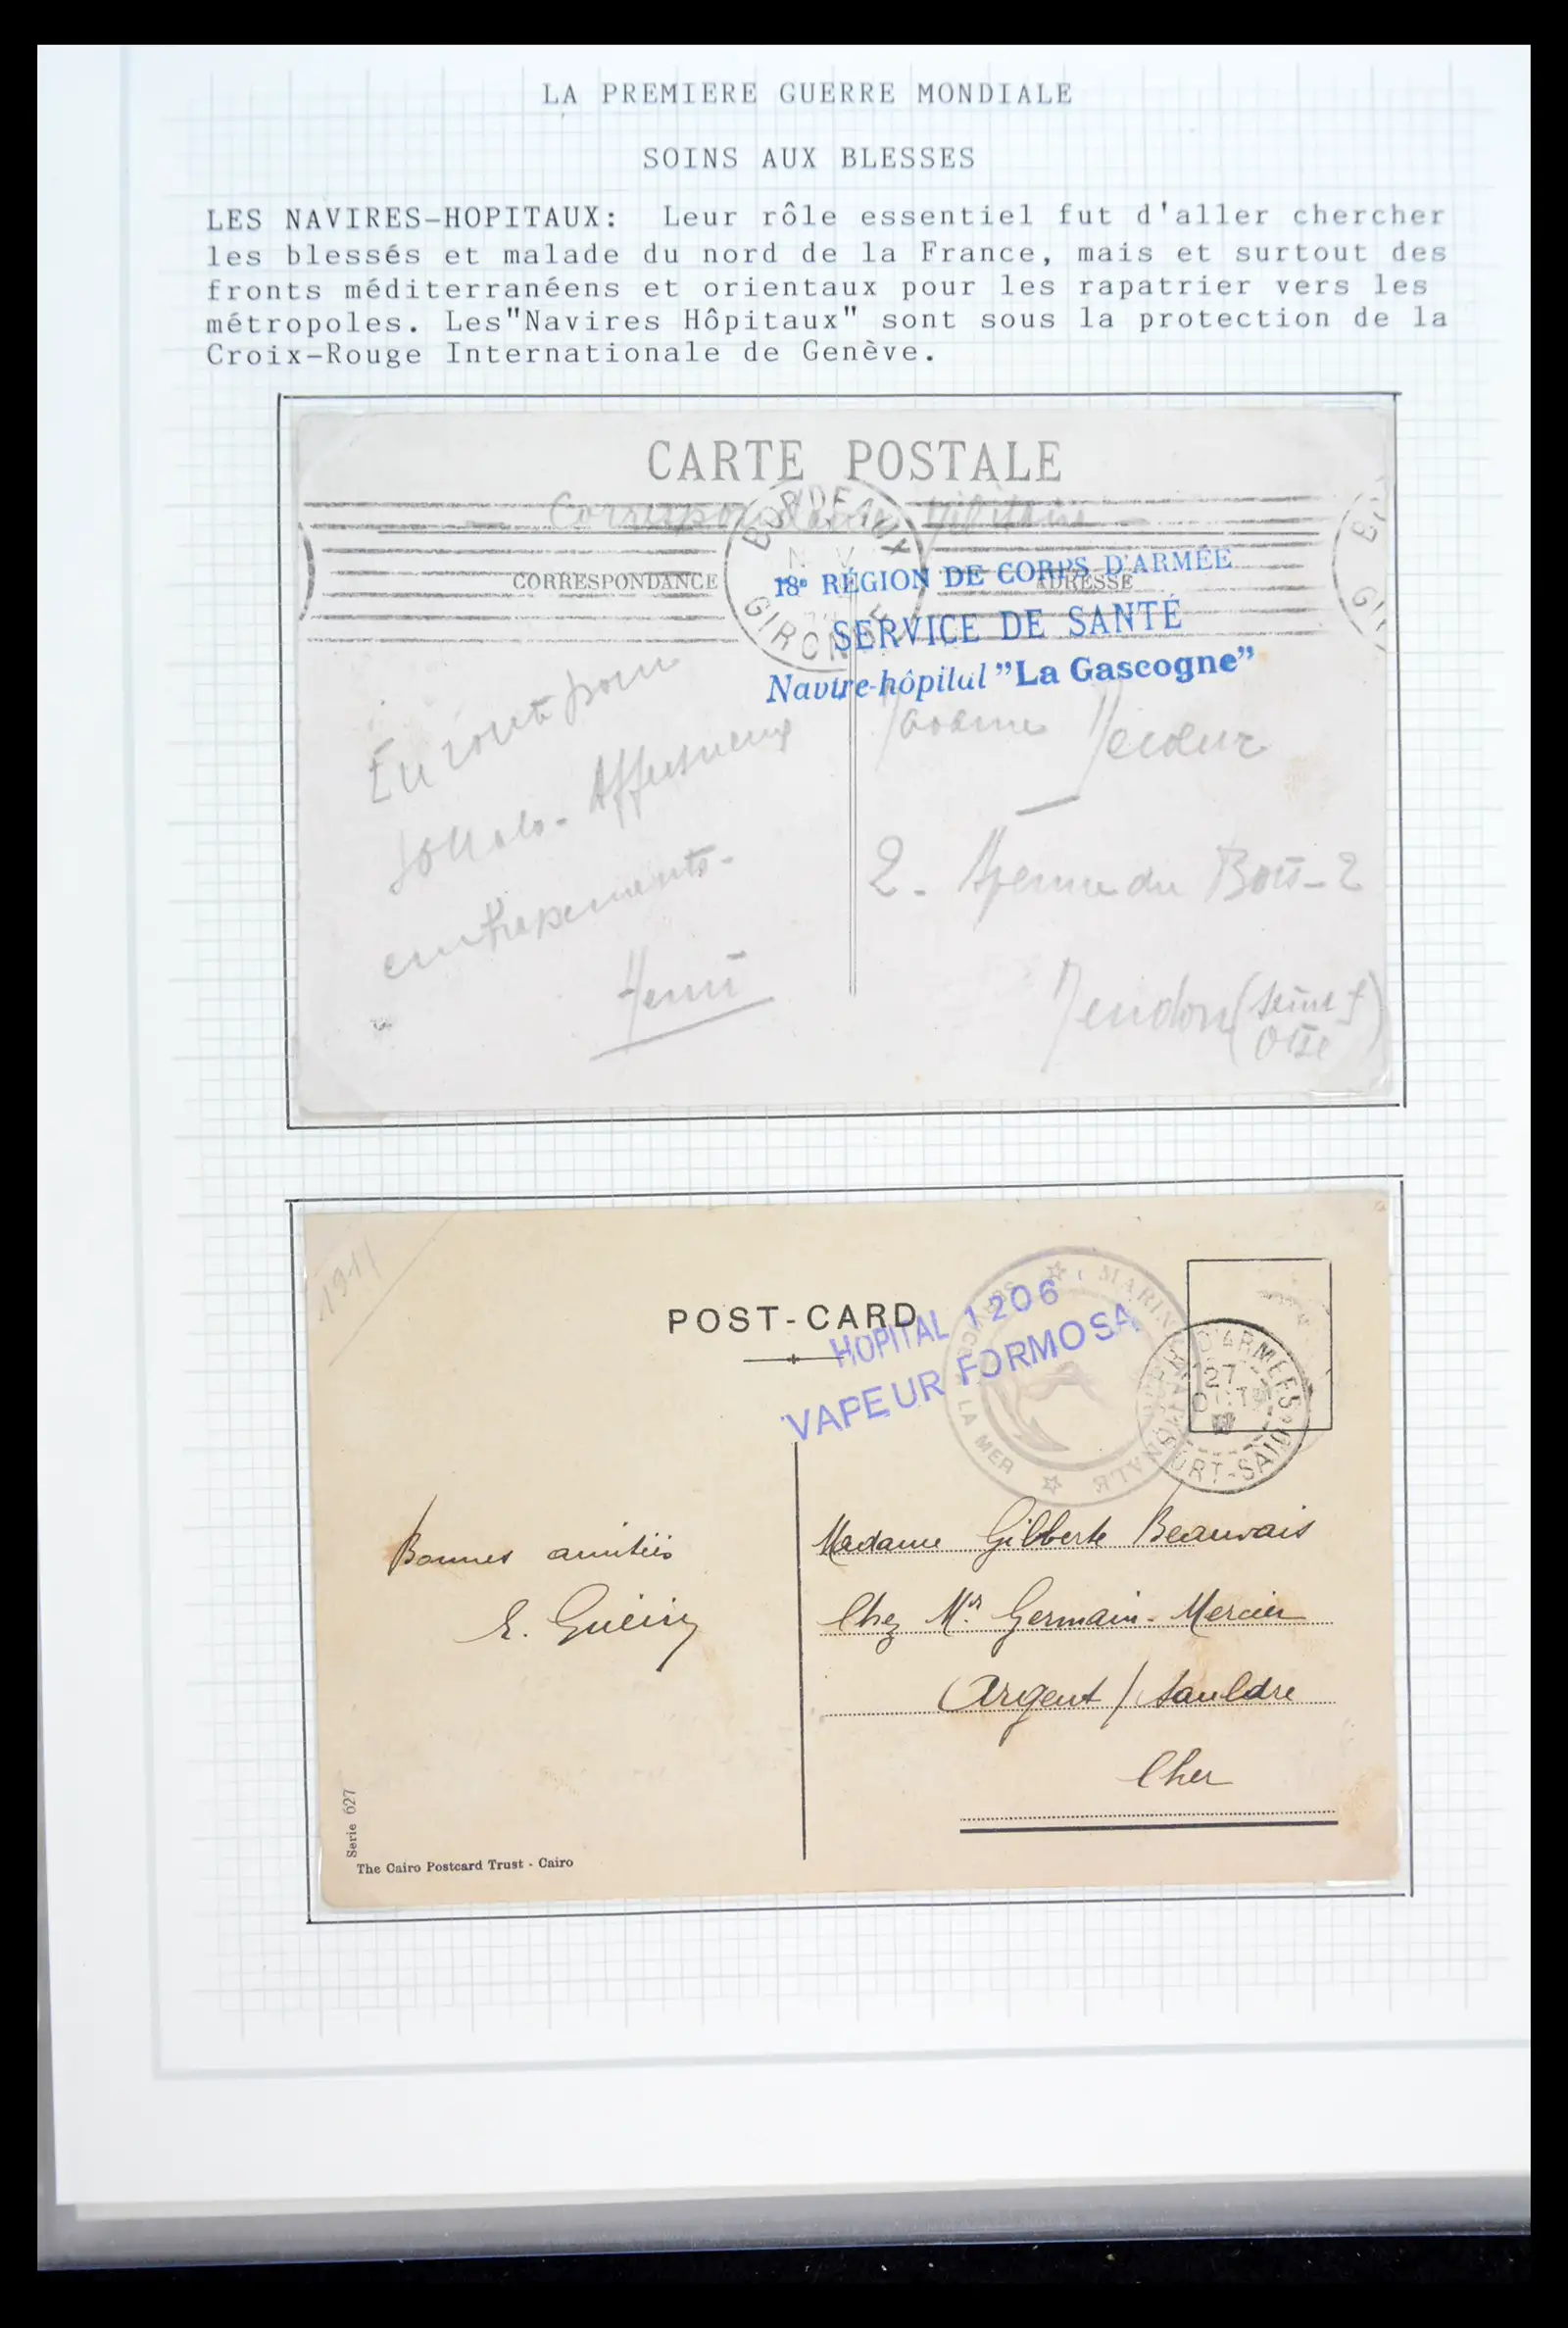 LA PREMIERE GUERRE MONDIALE
SOINS AUX BLESSES
LES NAVIRES-HOPITAUX: Leur rôle essentiel fut d'aller chercher
les blessés et malade du nord de la France, mais et surtout des
fronts méditerranéens et orientaux pour les rapatrier vers les
métropoles. Les"Navires Hôpitaux" sont sous la protection de la
Croix-Rouge Internationale de Genève.
CARTE POSTALE
Correspondance Militaire
BORDEAUX
GIRONDE
CORRESPONDANCE
ADRESSE
18e RÉGION DE CORPS D'ARMÉE
SERVICE DE SANTÉ
Navire-hôpital "La Gascogne"
En route pour
Affectueux
Henri
Madame
2. Avenue du Bois-2
(Seine &
Oise)
POST-CARD
HOPITAL 1206
VAPEUR FORMOSA
MARINE
LA MER
D'ARMEES
27
PORT-SAID
Bonnes amitiés
Madame Gilberte Beauvais
Chez Mr. Germain-Mercier
Argent / Sauldre
Cher
Serie 627
The Cairo Postcard Trust - Cairo